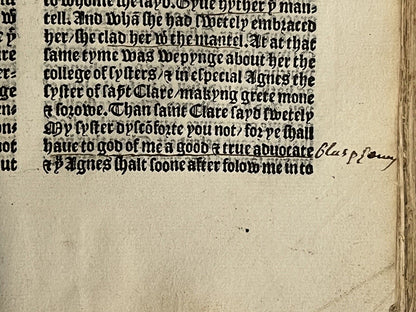 wͭ
yͤ
he
le
er-
ge
en=
on=
not
ut
to whome she sayd. Gyue hyther yͤ man-
tell. And whā she had swetely embraced
her / she clad her wͭ the mantel. At at that
same tyme was wepynge about her the
college of systers / ⁊ in especial Agnes the
syster of saȳt Clare / makyng grete mone
⁊ sorowe. Than saint Clare sayd swetely
My syster dyscōforte you not / for ye shall
haue to god of me a good ⁊ true aduocate Blasphemy
⁊ yͧ Agnes shalt soone after folow me in to